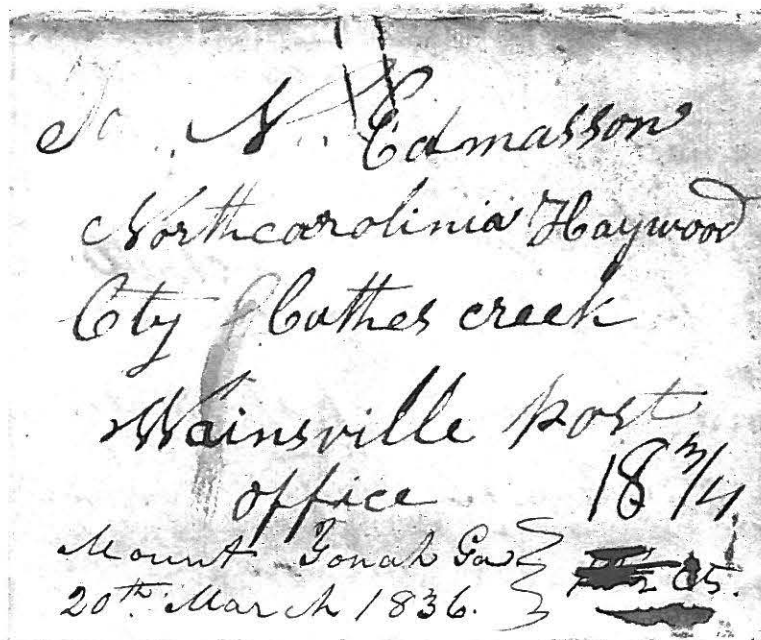 To N. Edmasson
Northcarolinia Haywood
Cty Cathes creek
Wainsville post
office 18 3/4
Mount Yonah Ga
20th March 1836.